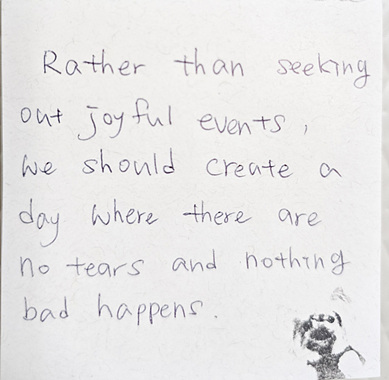 Rather than seeking
out joyful events,
we should create a
day where there are
no tears and nothing
bad happens.